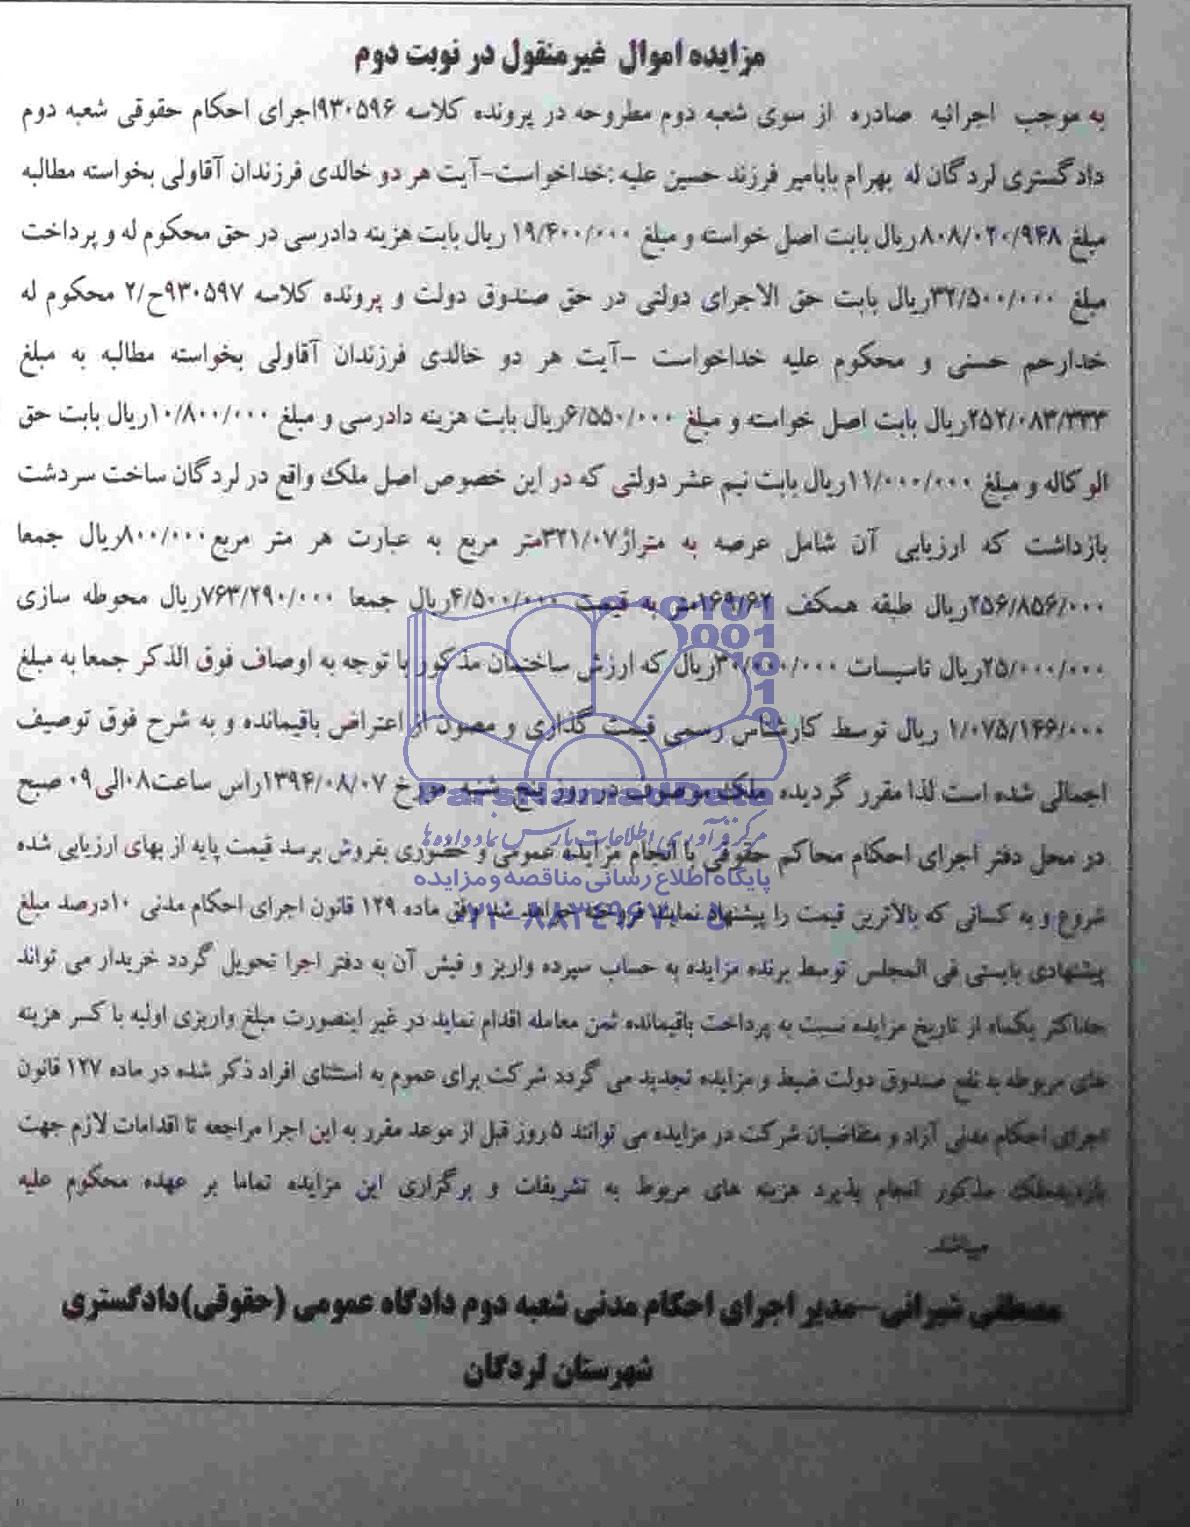 مزایده اموال غیرمنقول در نوبت دوم
به موجب اجرائیه صادره از سوی شعبه دوم مطروحه در پرونده کلاسه ۹۳۰۵۹۶اجرای احکام حقوقی شعبه دوم
دادگستری لردگان له بهرام بابامیر فرزند حسین علیه :خداخواست-آیت هر دو خالدی فرزندان آقاولی بخواسته مطالبه
مبلغ ۸۰۸/۰۲۰/۹۴۸ریال بابت اصل خواسته و مبلغ ۱۹/۴۰۰/۰۰۰ ریال بابت هزینه دادرسی در حق محکوم له و پرداخت
مبلغ ۳۲/۵۰۰/۰۰۰ریال بابت حق الاجرای دولتی در حق صندوق دولت و پرونده کلاسه ۹۳۰۵۹۷ح/۲ محکوم له
خدارحم حسنی و محکوم علیه خداخواست -آیت هر دو خالدی فرزندان آقاولی بخواسته مطالبه به مبلغ
۲۵۲/۰۸۳/۳۳۳ریال بابت اصل خواسته و مبلغ ۶/۵۵۰/۰۰۰ریال بابت هزینه دادرسی و مبلغ ۱۰/۸۰۰/۰۰۰ریال بابت حق
الوکاله و مبلغ ۱۱/۰۰۰/۰۰۰ریال بابت نیم عشر دولتی که در این خصوص اصل ملک واقع در لردگان ساخت سردشت
بازداشت که ارزیابی آن شامل عرصه به متراژ۳۲۱/۰۷متر مربع به عبارت هر متر مربع۸۰۰/۰۰۰ریال جمعا
۲۵۶/۸۵۶/۰۰۰ریال طبقه همکف ۱۶۹/۶۲متر به قیمت ۴/۵۰۰/۰۰۰ریال جمعا ۷۶۳/۲۹۰/۰۰۰ریال محوطه سازی
۲۵/۰۰۰/۰۰۰ریال تاسیسات ۳۰/۰۰۰/۰۰۰ریال که ارزش ساختمان مذکور با توجه به اوصاف فوق الذکر جمعا به مبلغ
۱/۰۷۵/۱۴۶/۰۰۰ ریال توسط کارشناس رسمی قیمت گذاری و مصون از اعتراض باقیمانده و به شرح فوق توصیف
اجمالی شده است لذا مقرر گردیده ملک موصوف در روز پنج شنبه مورخ ۱۳۹۴/۰۸/۰۷راس ساعت۰۸الی۰۹ صبح
در محل دفتر اجرای احکام محاکم حقوقی با انجام مزایده عمومی و حضوری بفروش برسد قیمت پایه از بهای ارزیابی شده
شروع و به کسانی که بالاترین قیمت را پیشنهاد نمایند فروخته خواهد شد وفق ماده ۱۲۹ قانون اجرای احکام مدنی ۱۰درصد مبلغ
پیشنهادی بایستی فی المجلس توسط برنده مزایده به حساب سپرده واریز و فیش آن به دفتر اجرا تحویل گردد خریدار می تواند
حداکثر یکماه از تاریخ مزایده نسبت به پرداخت باقیمانده ثمن معامله اقدام نماید در غیر اینصورت مبلغ واریزی اولیه با کسر هزینه
های مربوطه به نفع صندوق دولت ضبط و مزایده تجدید می گردد شرکت برای عموم به استثنای افراد ذکر شده در ماده ۱۲۷ قانون
اجرای احکام مدنی آزاد و متقاضیان شرکت در مزایده می توانند ۵ روز قبل از موعد مقرر به این اجرا مراجعه تا اقدامات لازم جهت
بازدیدملک مذکور انجام پذیرد هزینه های مربوط به تشریفات و برگزاری این مزایده تماما بر عهده محکوم علیه
میباشد.
مصطفی شیرانی-مدیر اجرای احکام مدنی شعبه دوم دادگاه عمومی (حقوقی)دادگستری
شهرستان لردگان
ParsNamadData
مرکز فرآوری اطلاعات پارس نماد داده‌ها
پایگاه اطلاع رسانی مناقصه و مزایده
۰۲۱-۸۸۳۴۹۶۷۰-۵